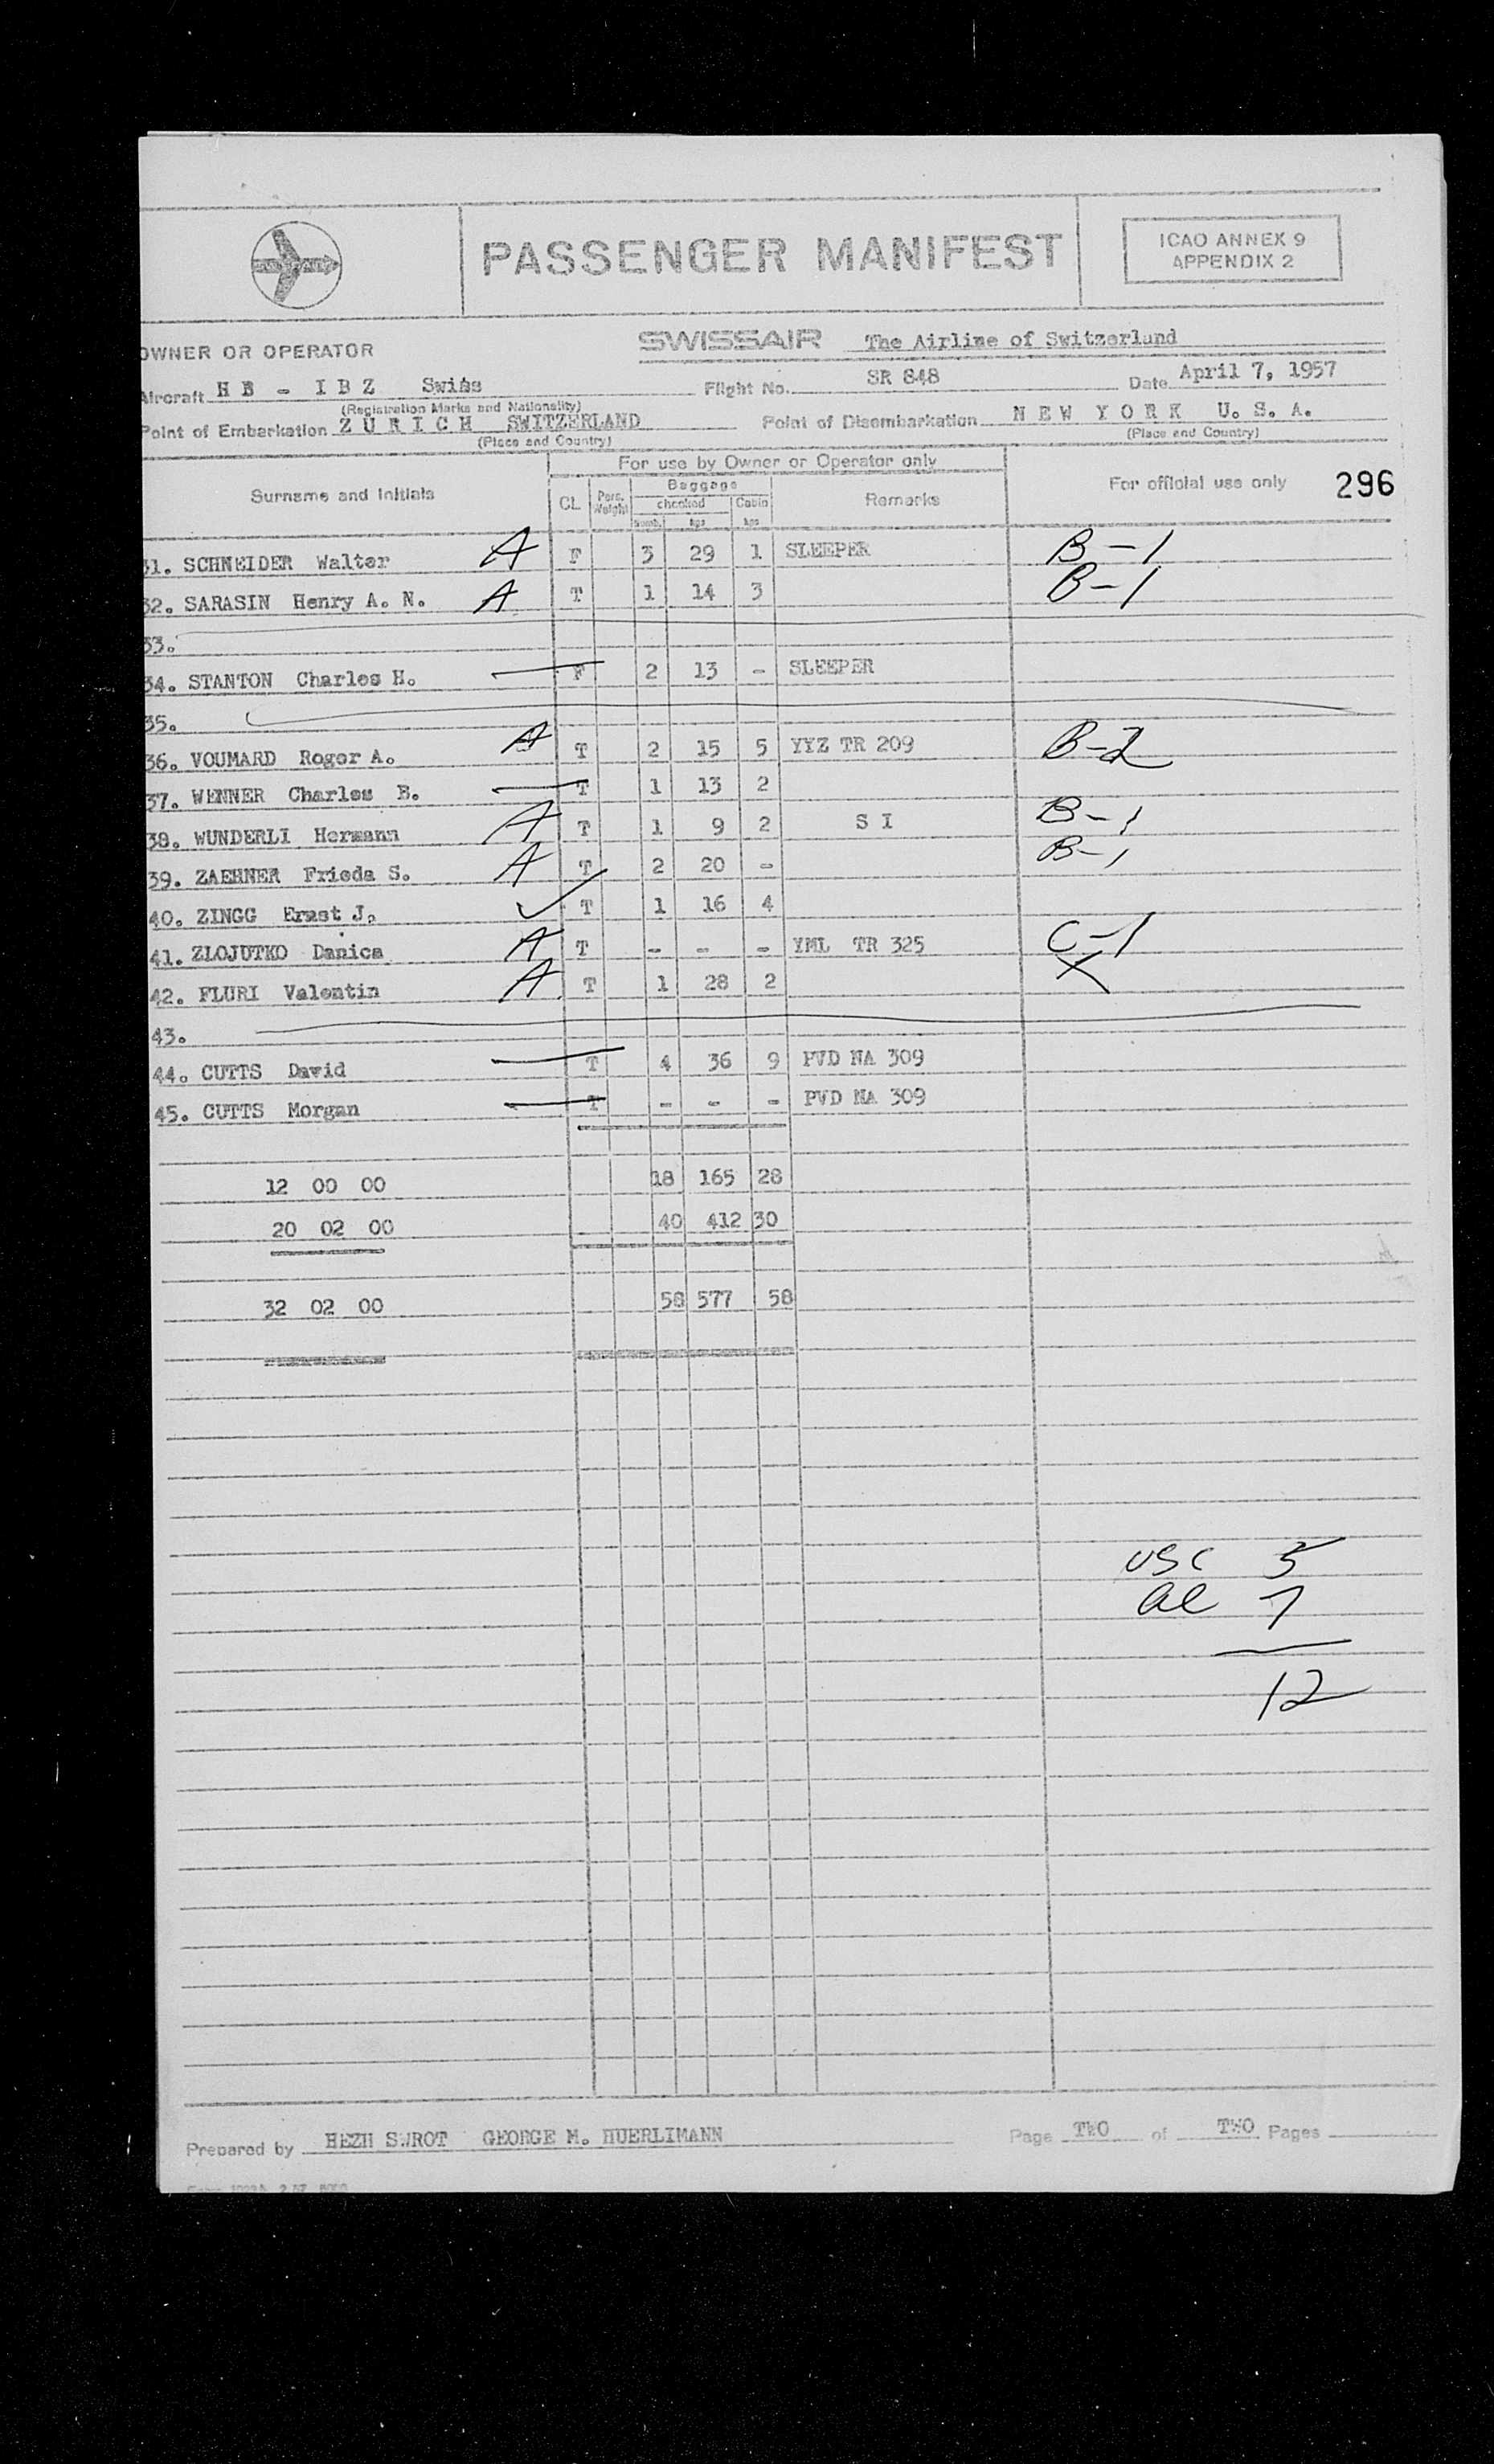 PASSENGER MANIFEST
ICAO ANNEX 9
APPENDIX 2
OWNER OR OPERATOR SWISSAIR The Airline of Switzerland
Aircraft H B - I B Z Swiss Flight No. SR 848 Date April 7, 1957
(Registration Marks and Nationality)
Point of Embarkation Z U R I C H SWITZERLAND Point of Disembarkation N E W Y O R K U. S. A.
(Place and Country) (Place and Country)
For use by Owner or Operator only
Surname and Initials CL Pers. Weight Baggage checked Cabin Remarks For official use only 296
numb. kgs kgs
31. SCHNEIDER Walter A F 3 29 1 SLEEPER B-1
32. SARASIN Henry A. N. A T 1 14 3 B-1
33.
34. STANTON Charles H. — F 2 13 - SLEEPER
35.
36. VOUMARD Roger A. A T 2 15 5 YYZ TR 209 B-2
37. WENNER Charles B. — T 1 13 2
38. WUNDERLI Hermann A T 1 9 2 S I B-1
39. ZAEHNER Frieda S. A T 2 20 - B-1
40. ZINGG Ernst J. ✓ T 1 16 4
41. ZLOJUTKO Danica A T - - - YML TR 325 C-1
42. FLURI Valentin A T 1 28 2 X
43.
44. CUTTS David — T 4 36 9 PVD NA 309
45. CUTTS Morgan — T - - - PVD NA 309
12 00 00 18 165 28
20 02 00 40 412 30
32 02 00 58 577 58
USC 5
al 7
12
Prepared by HEZH SWROT GEORGE M. HUERLIMANN Page TWO of TWO Pages